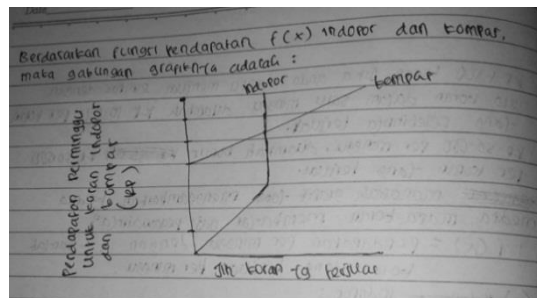 Berdasarkan fungsi pendapatan f(x) Indopor dan Kompar,
maka gabungan grafiknya adalah :
Indopor
Kompar
Pendapatan Perminggu
Untuk Koran Indopor
dan Kompar
(RP)
Jlh Koran yg terjual